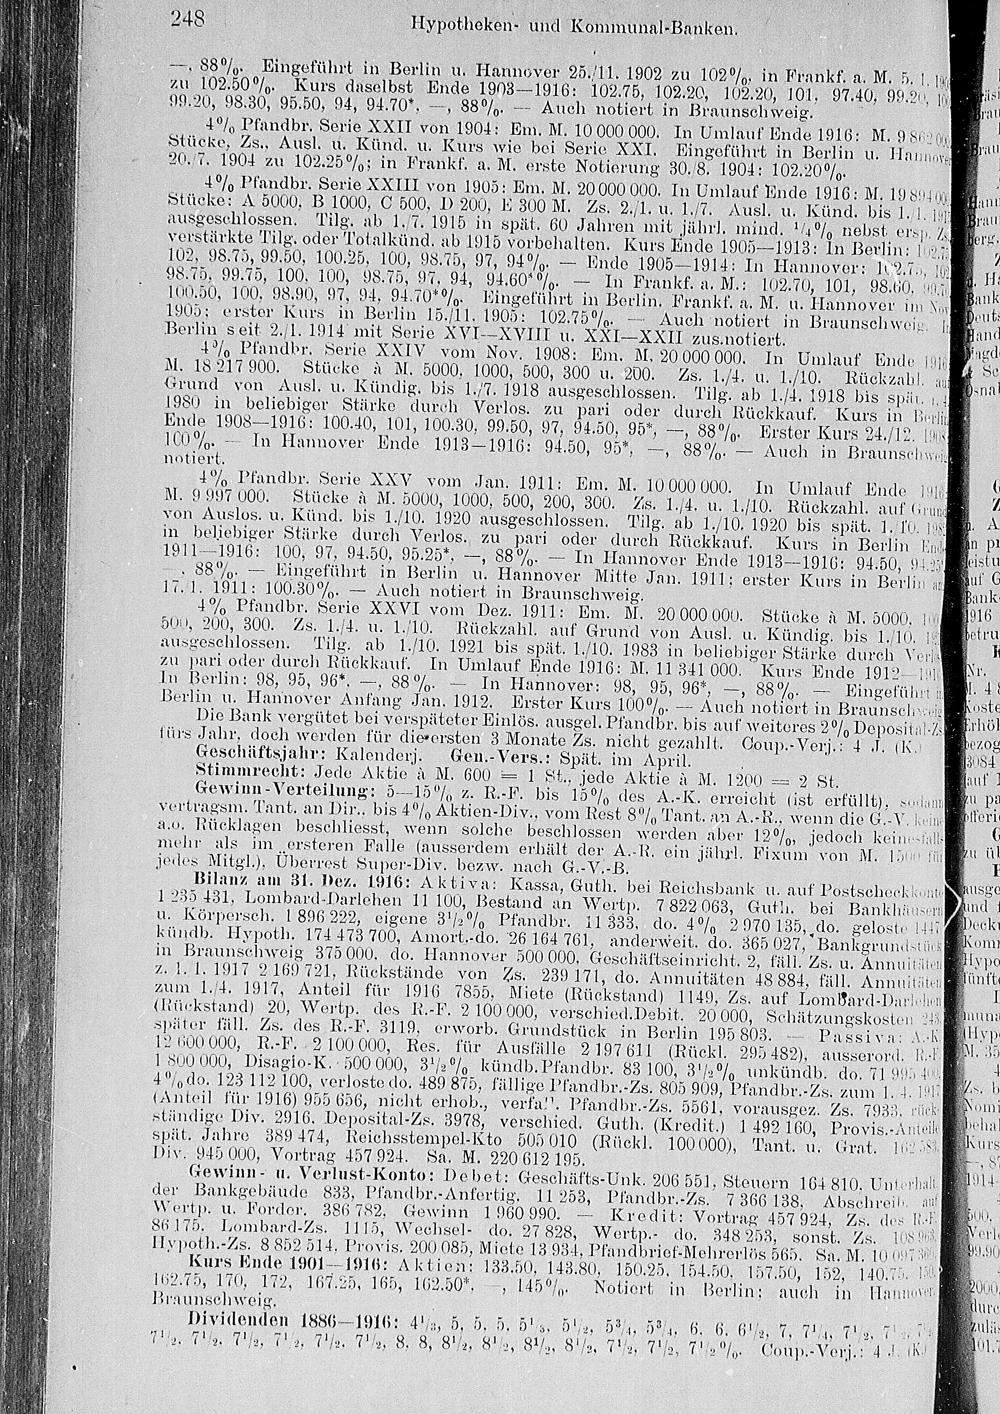 248
Hypotheken- und Kommunal-Banken.
—, 88%. Eingeführt in Berlin u. Hannover 25./11. 1902 zu 102%, in Frankf. a. M. 5. 1.
zu 102.50%. Kurs daselbst Ende 1903—1916: 102.75, 102.20, 102.20, 101, 97.40, 99.20,
99.20, 98.30, 95.50, 94, 94.70*, —, 88%. — Auch notiert in Braunschweig.
4% Pfandbr. Serie XXII von 1904: Em. M. 10 000 000. In Umlauf Ende 1916: M.
Stücke, Zs., Ausl. u. Künd. u. Kurs wie bei Serie XXI. Eingeführt in Berlin u. Hannover
20./7. 1904 zu 102.25%; in Frankf. a. M. erste Notierung 30./8. 1904: 102.20%.
4% Pfandbr. Serie XXIII von 1905: Em. M. 20 000 000. In Umlauf Ende 1916: M.
Stücke: A 5000, B 1000, C 500, D 200, E 300 M. Zs. 2./1. u. 1./7. Ausl. u. Künd. bis 1./1.
ausgeschlossen. Tilg. ab 1./7. 1915 in spät. 60 Jahren mit jährl. mind. 1/4% nebst ersp. Zs.
verstärkte Tilg. oder Totalkünd. ab 1915 vorbehalten. Kurs Ende 1905—1913: In Berlin: 102.75,
102, 98.75, 99.50, 100.25, 100, 98.75, 97, 94%. — Ende 1905—1914: In Hannover: 102.75,
98.75, 99.75, 100, 100, 98.75, 97, 94, 94.60*%. — In Frankf. a. M.: 102.70, 101, 98.60,
100.50, 100, 98.90, 97, 94, 94.70*%. Eingeführt in Berlin, Frankf. a. M. u. Hannover im Nov.
1905; erster Kurs in Berlin 15./11. 1905: 102.75%. — Auch notiert in Braunschweig.
Berlin seit 2./1. 1914 mit Serie XVI—XVIII u. XXI—XXII zus.notiert.
4% Pfandbr. Serie XXIV vom Nov. 1908: Em. M. 20 000 000. In Umlauf Ende 1916
M. 18 217 900. Stücke à M. 5000, 1000, 500, 300 u. 200. Zs. 1./4. u. 1./10. Rückzahl. auf
Grund von Ausl. u. Kündig. bis 1./7. 1918 ausgeschlossen. Tilg. ab 1./4. 1918 bis spät.
1980 in beliebiger Stärke durch Verlos. zu pari oder durch Rückkauf. Kurs in Berlin
Ende 1908—1916: 100.40, 101, 100.30, 99.50, 97, 94.50, 95*, —, 88%. Erster Kurs 24./12. 1908
100%. — In Hannover Ende 1913—1916: 94.50, 95*, —, 88%. — Auch in Braunschweig
notiert.
4% Pfandbr. Serie XXV vom Jan. 1911: Em. M. 10 000 000. In Umlauf Ende 1916
M. 9 997 000. Stücke à M. 5000, 1000, 500, 200, 300. Zs. 1./4. u. 1./10. Rückzahl. auf Grund
von Auslos. u. Künd. bis 1./10. 1920 ausgeschlossen. Tilg. ab 1./10. 1920 bis spät. 1./10.
in beliebiger Stärke durch Verlos. zu pari oder durch Rückkauf. Kurs in Berlin Ende
1911—1916: 100, 97, 94.50, 95.25*, —, 88%. — In Hannover Ende 1913—1916: 94.50,
—, 88%. — Eingeführt in Berlin u. Hannover Mitte Jan. 1911; erster Kurs in Berlin am
17./1. 1911: 100.30%. — Auch notiert in Braunschweig.
4% Pfandbr. Serie XXVI vom Dez. 1911: Em. M. 20 000 000. Stücke à M. 5000,
500, 200, 300. Zs. 1./4. u. 1./10. Rückzahl. auf Grund von Ausl. u. Kündig. bis 1./10.
ausgeschlossen. Tilg. ab 1./10. 1921 bis spät. 1./10. 1983 in beliebiger Stärke durch Verlos.
zu pari oder durch Rückkauf. In Umlauf Ende 1916: M. 11 341 000. Kurs Ende 1912—1916
In Berlin: 98, 95, 96*, —, 88%. — In Hannover: 98, 95, 96*, —, 88%. — Eingeführt in
Berlin u. Hannover Anfang Jan. 1912. Erster Kurs 100%. — Auch notiert in Braunschweig
Die Bank vergütet bei verspäteter Einlös. ausgel. Pfandbr. bis auf weiteres 2% Deposital-Zs.
fürs Jahr, doch werden für die ersten 3 Monate Zs. nicht gezahlt. Coup.-Verj.: 4 J. (K.)
Geschäftsjahr: Kalenderj. Gen.-Vers.: Spät. im April.
Stimmrecht: Jede Aktie à M. 600 = 1 St., jede Aktie à M. 1200 = 2 St.
Gewinn-Verteilung: 5—15% z. R.-F. bis 15% des A.-K. erreicht (ist erfüllt), sodann
vertragsm. Tant. an Dir., bis 4% Aktien-Div., vom Rest 8% Tant. an A.-R., wenn die G.-V. keine
a.o. Rücklagen beschliesst, wenn solche beschlossen werden aber 12%, jedoch keinesfalls
mehr als im ersteren Falle (ausserdem erhält der A.-R. ein jährl. Fixum von M. 1500 für
jedes Mitgl.), Überrest Super-Div. bezw. nach G.-V.-B.
Bilanz am 31. Dez. 1916: Aktiva: Kassa, Guth. bei Reichsbank u. auf Postscheckkonto
1 235 431, Lombard-Darlehen 11 100, Bestand an Wertp. 7 822 063, Guth. bei Bankhäusern
u. Körpersch. 1 896 222, eigene 3 1/2% Pfandbr. 11 333, do. 4% 2 970 135, do. geloste 1447
kündb. Hypoth. 174 473 700, Amort.-do. 26 164 761, anderweit. do. 365 027, Bankgrundstück
in Braunschweig 375 000, do. Hannover 500 000, Geschäftseinricht. 2, fäll. Zs. u. Annuitäten
z. 1. 1. 1917 2 169 721, Rückstände von Zs. 239 171, do. Annuitäten 48 884, fäll. Annuitäten
zum 1./4. 1917, Anteil für 1916 7855, Miete (Rückstand) 1149, Zs. auf Lombard-Darlehen
(Rückstand) 20, Wertp. des R.-F. 2 100 000, verschied. Debit. 20 000, Schätzungskosten 243,
später fäll. Zs. des R.-F. 3119, erworb. Grundstück in Berlin 195 803. — Passiva: A.-K.
12 600 000, R.-F. 2 100 000, Res. für Ausfälle 2 197 611 (Rückl. 295 482), ausserord. R.-F.
1 800 000, Disagio-K. 500 000, 3 1/2% kündb. Pfandbr. 83 100, 3 1/2% unkündb. do. 71 995 400,
4% do. 123 112 100, verloste do. 489 875, fällige Pfandbr.-Zs. 805 909, Pfandbr.-Zs. zum 1. 4. 1917
(Anteil für 1916) 955 656, nicht erhob., verfall. Pfandbr.-Zs. 5561, vorausgez. Zs. 7933, rück-
ständige Div. 2916, Deposital-Zs. 3978, verschied. Guth. (Kredit.) 1 492 160, Provis.-Anteile
spät. Jahre 389 474, Reichsstempel-Kto 505 010 (Rückl. 100 000), Tant. u. Grat. 162 583,
Div. 945 000, Vortrag 457 924. Sa. M. 220 612 195.
Gewinn- u. Verlust-Konto: Debet: Geschäfts-Unk. 206 551, Steuern 164 810, Unterhalt.
der Bankgebäude 833, Pfandbr.-Anfertig. 11 253, Pfandbr.-Zs. 7 366 138, Abschreib. auf
Wertp. u. Forder. 386 782, Gewinn 1 960 990. — Kredit: Vortrag 457 924, Zs. des R.-F.
86 175, Lombard-Zs. 1115, Wechsel- do. 27 828, Wertp.- do. 348 253, sonst. Zs. 108 963,
Hypoth.-Zs. 8 852 514, Provis. 200 085, Miete 13 934, Pfandbrief-Mehrerlös 565. Sa. M. 10 097 360.
Kurs Ende 1901—1916: Aktien: 133.50, 143.80, 150.25, 154.50, 157.50, 152, 140.75,
162.75, 170, 172, 167.25, 165, 162.50*, —, 145%. Notiert in Berlin; auch in Hannover,
Braunschweig.
Dividenden 1886—1916: 4 1/3, 5, 5, 5, 5 1/3, 5 1/2, 5 3/4, 5 3/4, 6, 6, 6 1/2, 7, 7 1/4, 7 1/2,
7 1/2, 7 1/2, 7 1/2, 7 1/2, 7 1/2, 7 1/2, 8, 8, 8 1/2, 8 1/2, 8 1/2, 8 1/2, 7 1/2, 7 1/2, 7 1/2%. Coup.-Verj.: 4 J. (K.)